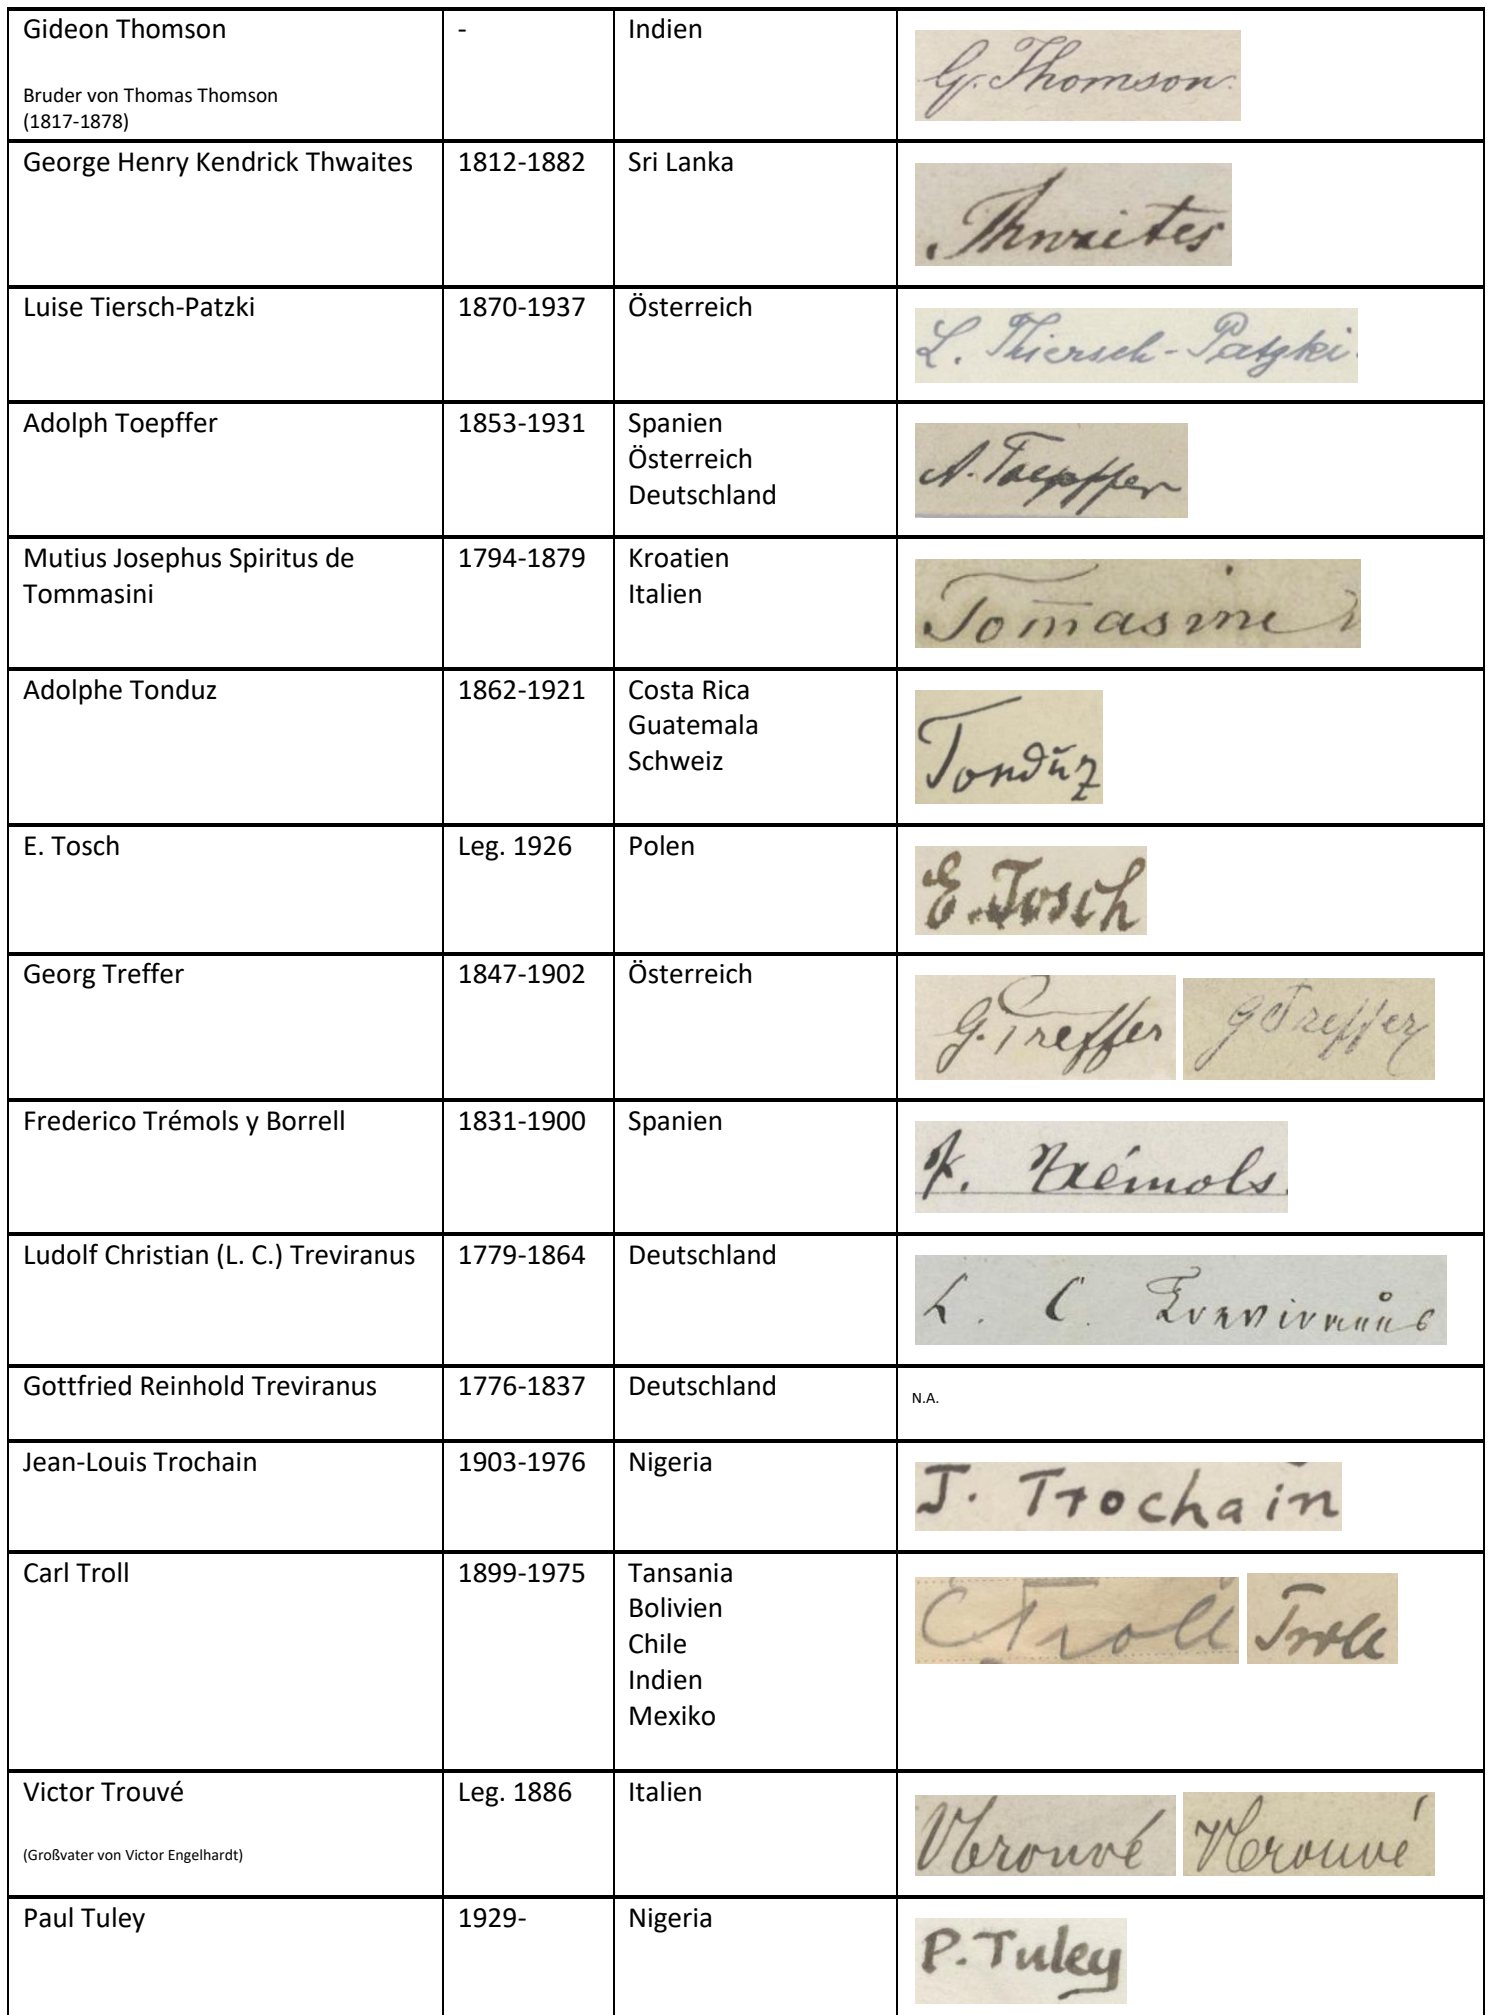 Gideon Thomson - Indien G. Thomson.
Bruder von Thomas Thomson
(1817-1878)
George Henry Kendrick Thwaites 1812-1882 Sri Lanka Thwaites
Luise Tiersch-Patzki 1870-1937 Österreich L. Thiersch-Patzki.
Adolph Toepffer 1853-1931 Spanien A. Toepffer
Österreich
Deutschland
Mutius Josephus Spiritus de 1794-1879 Kroatien Tom̅asini
Tommasini Italien
Adolphe Tonduz 1862-1921 Costa Rica Tonduz
Guatemala
Schweiz
E. Tosch Leg. 1926 Polen E. Tosch
Georg Treffer 1847-1902 Österreich G. Treffer G Treffer
Frederico Trémols y Borrell 1831-1900 Spanien F. Trémols.
Ludolf Christian (L. C.) Treviranus 1779-1864 Deutschland L. C. Treviranus
Gottfried Reinhold Treviranus 1776-1837 Deutschland N.A.
Jean-Louis Trochain 1903-1976 Nigeria J. Trochain
Carl Troll 1899-1975 Tansania C Troll Troll
Bolivien
Chile
Indien
Mexiko
Victor Trouvé Leg. 1886 Italien VTrouvé VTrouvé
(Großvater von Victor Engelhardt)
Paul Tuley 1929- Nigeria P. Tuley